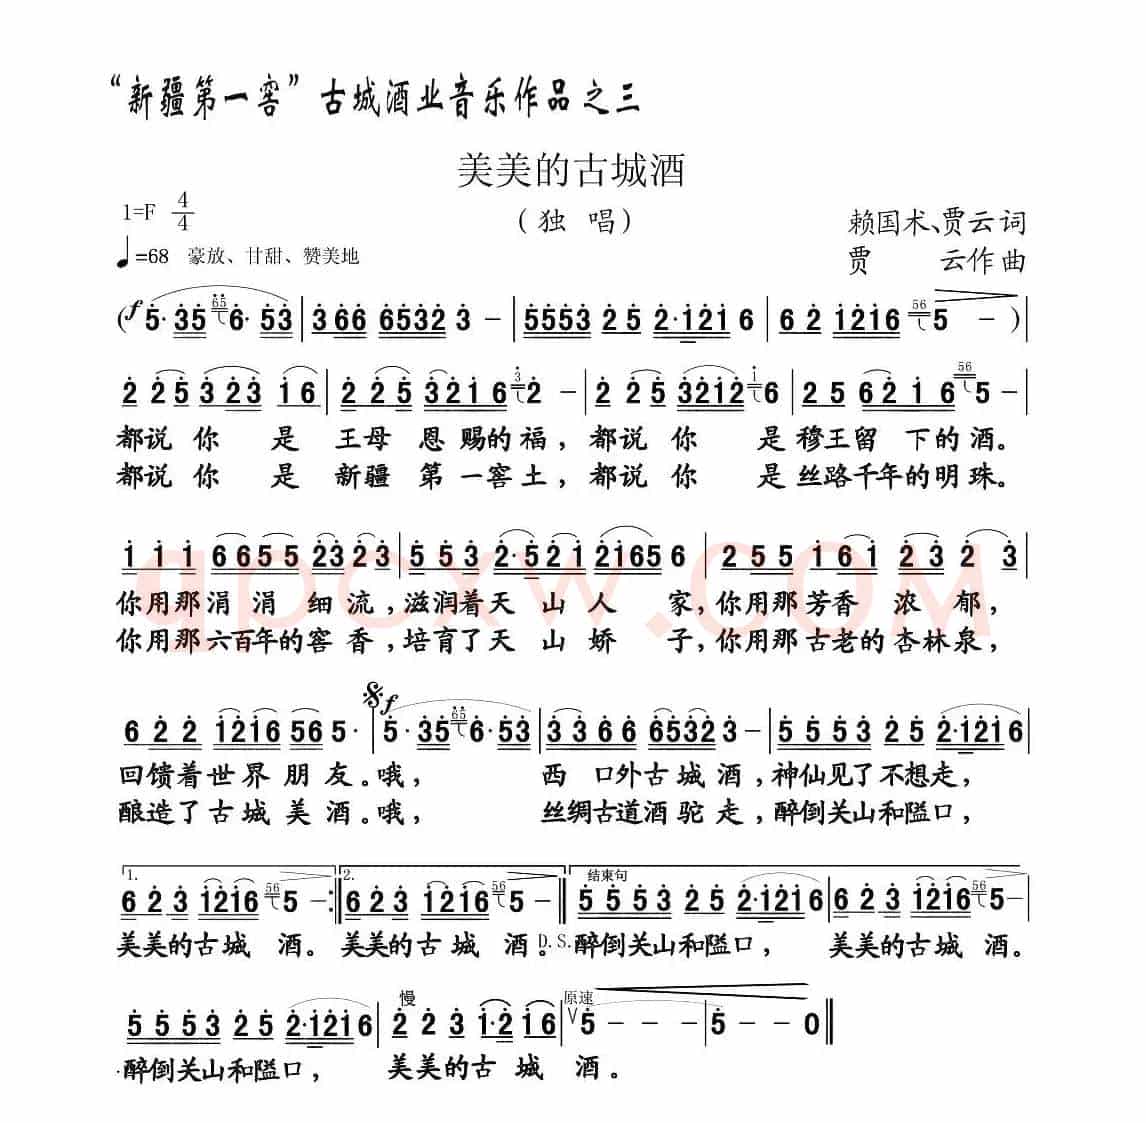 “新疆第一窖”古城酒业音乐作品之三
美美的古城酒
1=F 4/4 （独 唱） 赖国术、贾云词
♩=68 豪放、甘甜、赞美地 贾 云作曲
(f 5·35 65 6·53 | 366 6532 3 – | 5553 25 2·121 6 | 62 1216 56 5 – ) |
2 25 323 16 | 2 25 3216 3 2 – | 2 25 3212 1 6 | 25 6216 56 5 – |
都说你 是 王母 恩 赐的福，都说你 是穆王留 下的酒。
都说你 是 新疆 第一窖土，都说你 是丝路千年的明珠。
111 6655 23 23 | 553 2·521 2165 6 | 255 161 23 2 3 |
你用那涓 涓 细 流，滋润着天 山 人 家，你用那芳香 浓 郁，
你用那六百年的窖 香，培育了天 山 娇 子，你用那古老的杏林泉，
622 1216 56 5· | f 5·35 65 6·53 | 3366 6532 3 – | 5553 25 2·121 6 |
回馈着世界 朋 友。哦， 西 口外古城酒，神仙见了不想走，
酿造了古城美酒。哦， 丝绸古道酒驼走，醉倒关山和隘口，
1. 2. 结束句
623 1216 56 5 – :‖ 623 1216 56 5 – ‖ 5553 25 2·121 6 | 623 1216 56 5 – |
美美的古城 酒。 美美的古城 酒。D.S.醉倒关山和隘口， 美美的古城 酒。
慢 原速
5553 25 2·121 6 | 2 23 1·2 16 | V 5 – – – | 5 – – 0 ‖
醉倒关山和隘口， 美美的古 城 酒。
qpcxw.COM